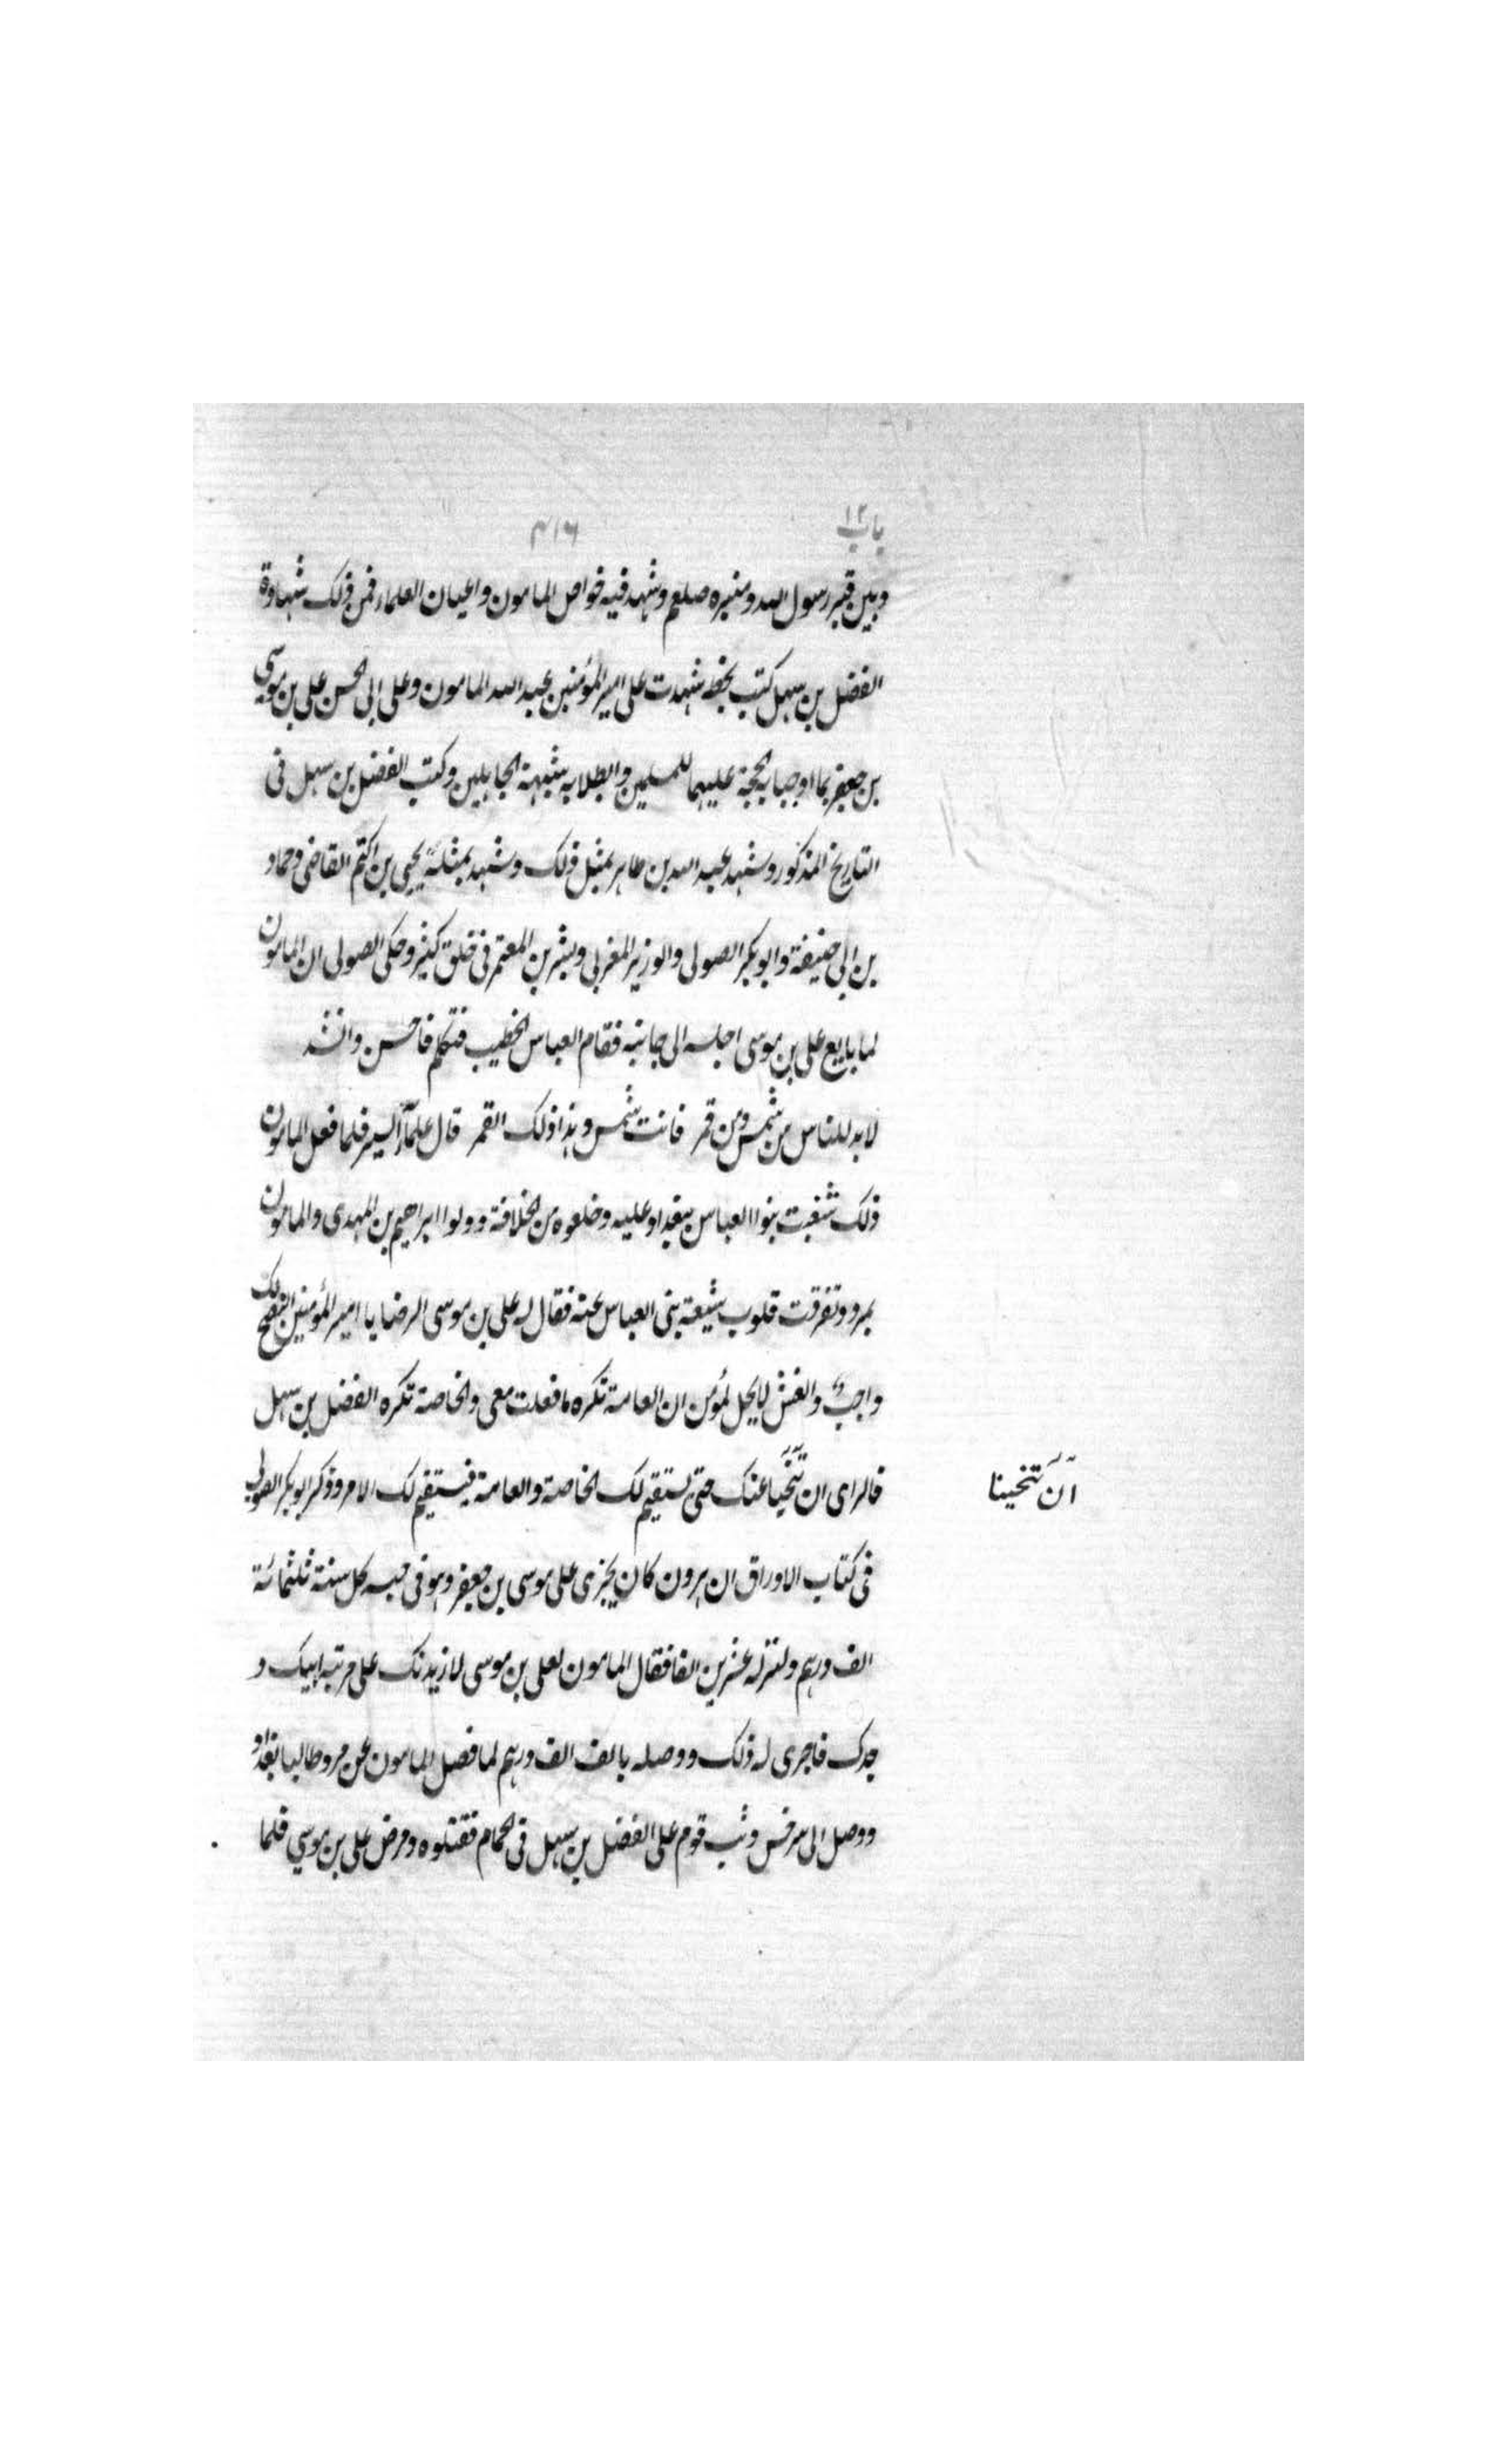 باب ١٢
٤١٦
وبين قبر رسول الله ومنبره صلعم وشهد فيه خواص المامون واعيان العلماء فمن ذلك شهادة
الفضل بن سهل كتب بخطه شهدت على امير المؤمنين عبد الله المامون وعلى ابى الحسن على بن موسى
بن جعفر بما اوجبا به الحجة عليهما للمسلمين وابطلا به شبهة الجاهلين وكتب الفضل بن سهل فى
التاريخ المذكور وشهد عبد الله بن طاهر بمثل ذلك وشهد بمثله يحيى بن اكثم القاضى وحماد
بن ابى حنيفة وابو بكر الصولى والوزير المغربى وبشر بن المعتمر فى خلق كثير وحكى الصولى ان المامون
لما بايع على بن موسى اجلسه الى جانبه فقام العباس الخطيب فتكلم فاحسن وانشد
لا بد للناس من شمس ومن قمر فانت شمس وهذا ذلك القمر قال علماء السير فلما فعل المامون
ذلك شغبت بنوا العباس ببغداد عليه وخلعوه من الخلافة وولوا ابراهيم بن المهدى والمامون
بمرو وتفرقت قلوب شيعة بنى العباس عنه فقال له على بن موسى الرضا يا امير المؤمنين النصح لك
واجب والغش لا يحل لمؤمن ان العامة تكره ما فعلت معى والخاصة تكره الفضل بن سهل
فالراى ان تنحيا عنك حتى يستقيم لك الخاصة والعامة فيستقيم لك الامر وذكر ابو بكر الصولى
ان تنحينا
فى كتاب الاوراق ان هرون كان يجرى على موسى بن جعفر وهو فى حبسه كل سنة ثلثمائة
الف درهم ولنزله عشرين الفا فقال المامون لعلى بن موسى لازيدنك على مرتبة ابيك و
جدك فاجرى له ذلك ووصله بالف الف درهم لما فصل المامون عن مرو طالبا بغداد
ووصل الى سرخس وثب قوم على الفضل بن سهل فى الحمام فقتلوه ومرض على بن موسى فلما